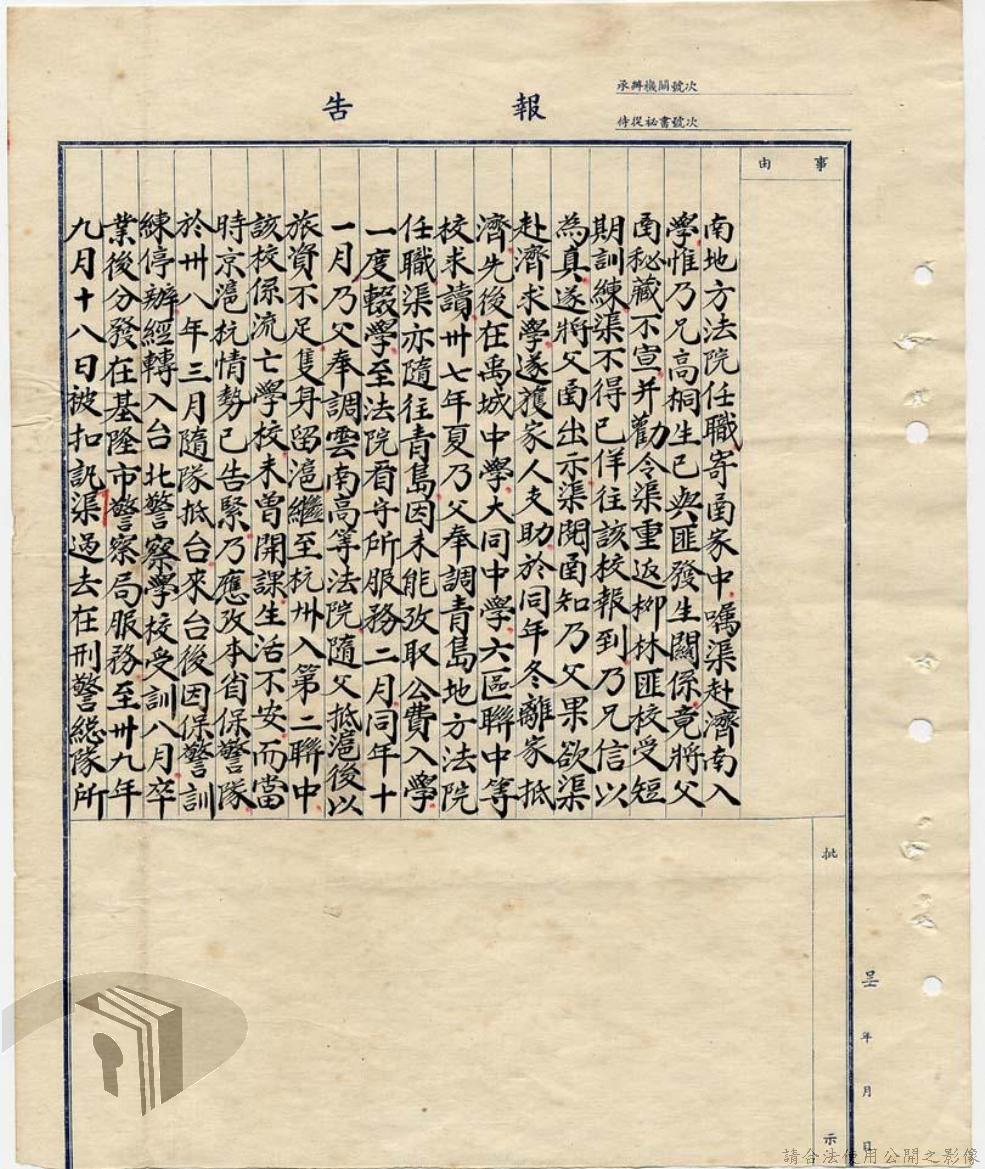 報告
承辦機關號次
侍從祕書號次
事由
南地方法院任職寄函家中囑渠赴濟南入
學惟乃兄高桐生已與匪發生關係竟將父
函秘藏不宣并勸令渠重返柳林匪校受短
期訓練渠不得已佯往該校報到乃兄信以
為真遂將父函出示渠閱函知乃父果欲渠
赴濟求學遂獲家人支助於同年冬離家抵
濟先後在禹城中學大同中學六區聯中等
校求讀卅七年夏乃父奉調青島地方法院
任職渠亦隨往青島因未能攷取公費入學
一度輟學至法院看守所服務二月同年十
一月乃父奉調雲南高等法院隨父抵滬後以
旅資不足隻身留滬繼至杭州入第二聯中
該校係流亡學校未曾開課生活不安而當
時京滬杭情勢已告緊乃應攷本省保警隊
於卅八年三月隨隊抵台來台後因保警訓
練停辦經轉入台北警察學校受訓八月卒
業後分發在基隆市警察局服務至卅九年
九月十八日被扣訊渠過去在刑警總隊所
批示
呈 年 月 日
請合法使用公開之影像